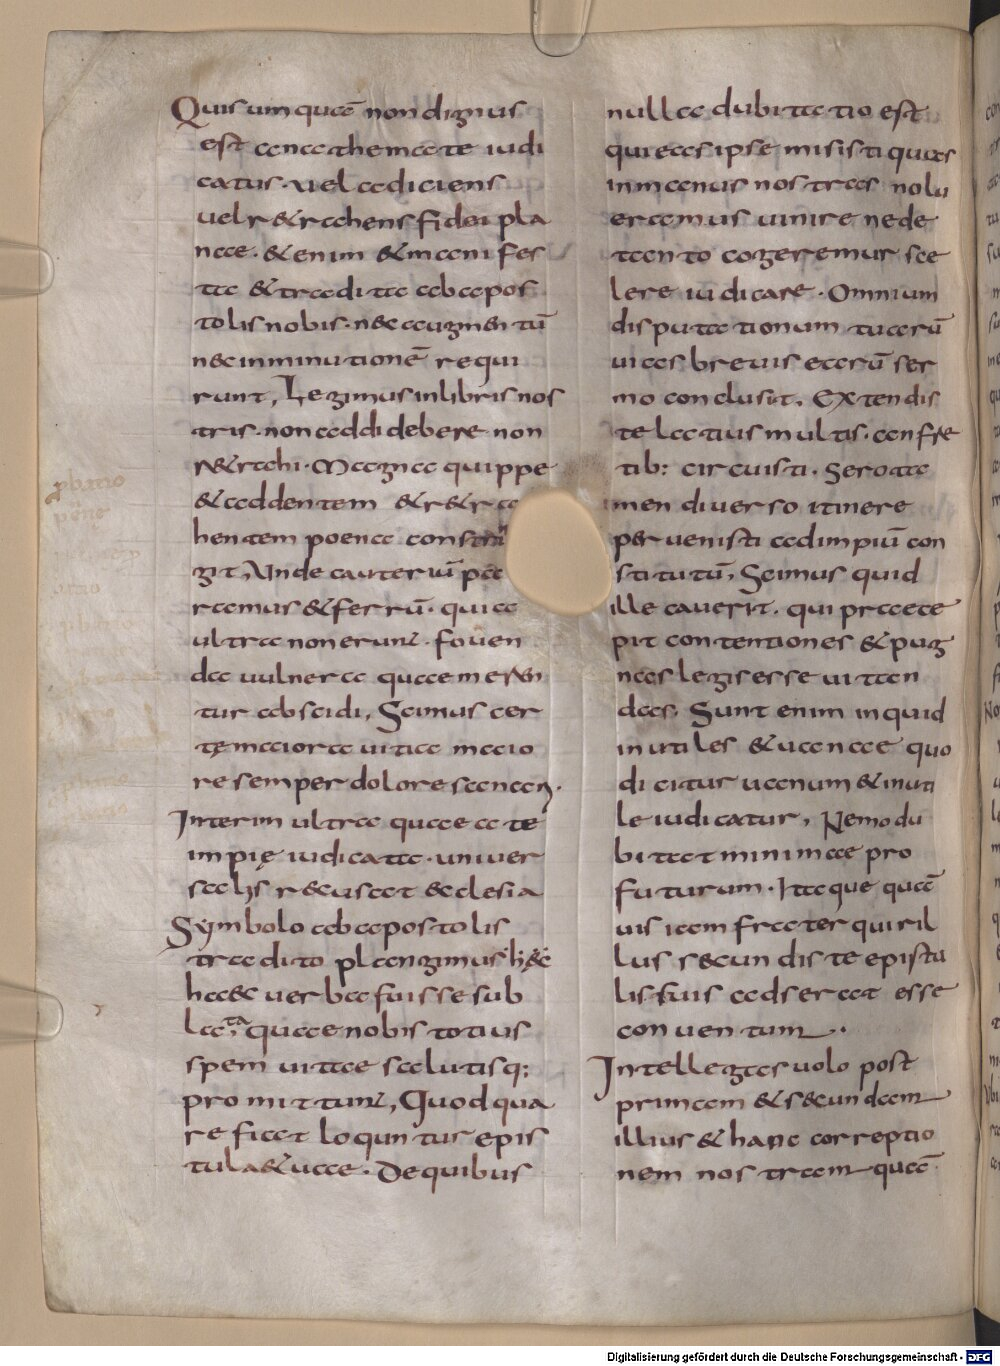 Quis umquā non dignus
est anathemate iudi
catus · uel adiciens
uel r&rahens fidei pla
nae · & enim & manifes
ta & tradita ab apos
tolis nobis · nec augmentū
nec inminutionē requi
runt, Legimus in libris nos
tris · non addi debere non
r&rahi · Magna quippe
& addentem & r&ra
hentem poena constrin
git, Unde cauteriū pa
ramus & ferrū · quia
ultra non erunt · fouen
da uulnera quae meren
tur abscidi, Scimus cer
tę maiora uitia maio
re semper dolore sanari ·
Interim ultra quae a te
impię iudicata · uniuer
salis recusat ecclesia
Symbolo ab apostolis
tradito plangimus
haec uerba fuisse sub
lata, quae nobis totius
spem uitae salutisq;
promittunt, Quod qua
re fiat loquntur epis
tulae tuae · De quibus
nulla dubitatio est
quia eas ipse misisti quas
in manus nostras nolu
eramus uinire ne de
tanto cogeremur sce
lere iudicare · Omnium
disputationum tuarū
uias breuis earū ser
mo conclusit, Extendis
te latius multis · anfrac
tib: circuisti · Sero ta
men diuerso itinere
peruenisti ad impiū con
stitutū, Scimus quid
ille cauerit · qui praece
pit contentiones & pug
nas legis esse uitan
das, Sunt enim inquid
inutiles & uanae quo
dicitur uanum & inuti
le iudicatur, Nemo du
bitat minimae pro
futurum · Itaque quā
uis iam frater quiril
lus secundis te epistu
lis suis adserat esse
conuentum ·
Intellegas uolo post
primam & secundam
illius & hanc correptio
nem nostram quā
Digitalisierung gefördert durch die Deutsche Forschungsgemeinschaft - DFG